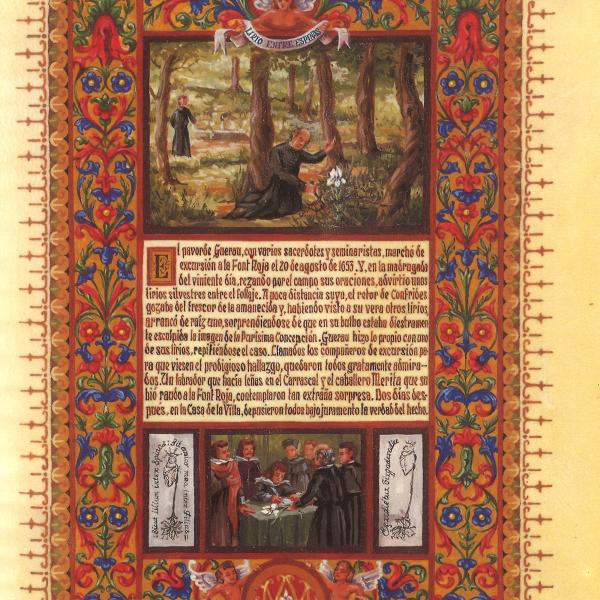 LIRIO ENTRE ESPINAS
El pavorde Guerau, con varios sacerdotes y seminaristas, marchó de
excursión a la Font Roja el 20 de agosto de 1653. Y, en la madrugada
del viniente día, rezando por el campo sus oraciones, advirtio unos
lirios silvestres entre el follaje. A poca distancia suya, el retor de Confrides
gozaba del frescor de la amanecida y, habiendo visto a su vera otros lirios
arrancó de raíz uno, sorprendiendose de que en su bulbo estaba diestramen-
te esculpida la imagen de la Purísima Concepción. Guerau hizo lo propio con uno
de sus lirios, repitiendose el caso. Llamados los compañeros de excursión pa-
ra que viesen el prodigioso hallazgo, quedaron todos gratamente admira-
dos. Un labrador que hacía leñas en el Carrascal y el caballero Merita que su
bió raudo a la Font Roja, contemplaron tan extraña sorpresa. Dos días des-
pues, en la Casa de la Villa, depusieron todos bajo juramento la verdad del hecho.
Sicut lilium inter spinas: sic
amica mea inter filias